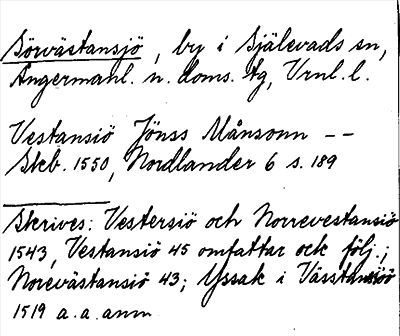 Sörvästansjö, by i Själevads sn,
Ångermanl. n. doms. tg, Vrnl. l.
Vestansiö Jönss Månsonn --
Skb. 1550, Nordlander 6 s. 189
Skrives: Vestersiö och Norrevestansiö
1543, Vestansiö 45 omfattar ock följ.;
Norevästansiö 43; Yssak i Vässtansiöö
1519 a.a. anm